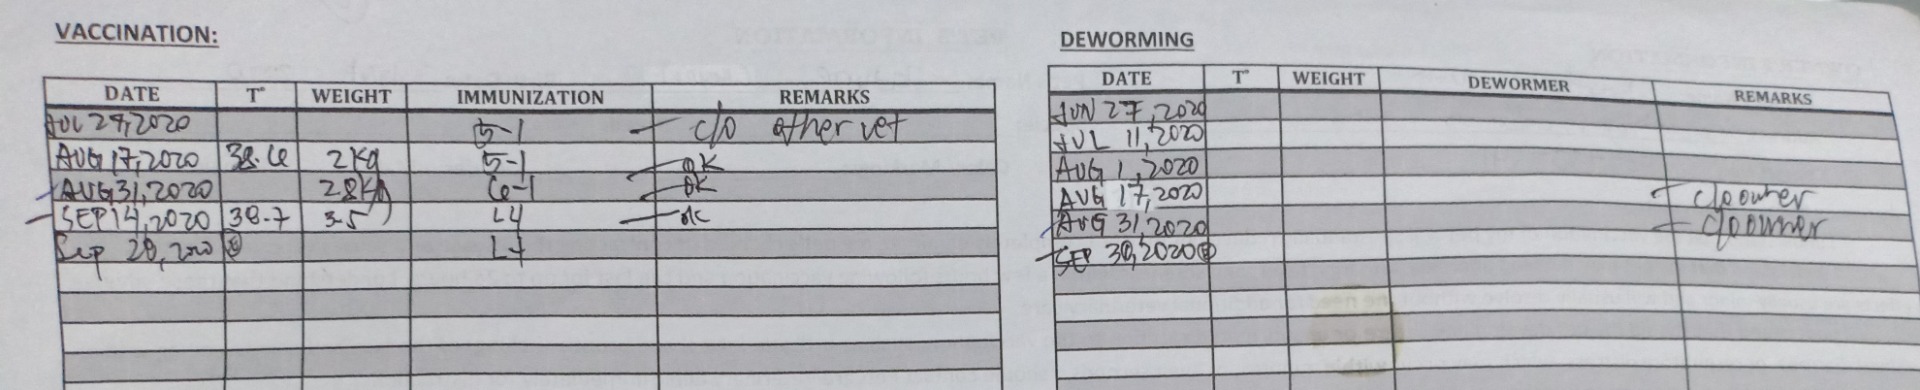 VACCINATION:
DATE T° WEIGHT IMMUNIZATION REMARKS
JUL 27, 2020 5-1 c/o other vet
AUG 17, 2020 38.6 2 Kg 5-1 OK
AUG 31, 2020 2.8 Kg 6-1 OK
SEP 14, 2020 38.7 3.5 L4 OK
Sep 28, 2020 L4
DEWORMING
DATE T° WEIGHT DEWORMER REMARKS
JUN 27, 2020
JUL 11, 2020
AUG 1, 2020
AUG 17, 2020 c/o owner
AUG 31, 2020 c/o owner
SEP 30, 2020